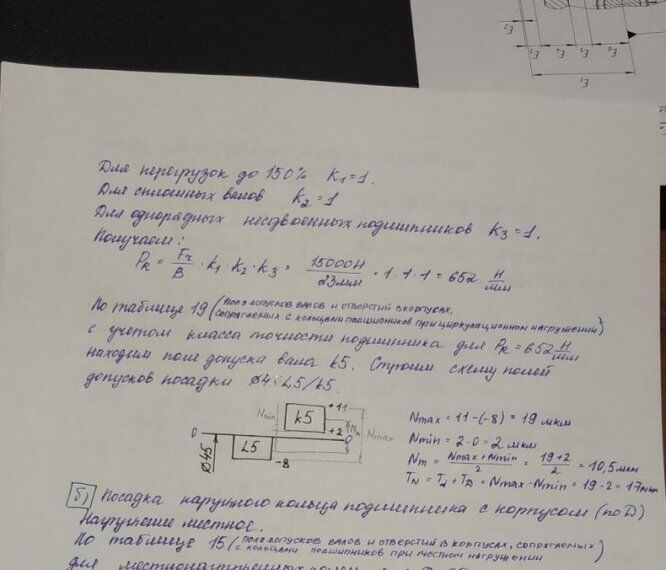 Для перегрузок до 150% K₁=1.
Для сплошных валов K₂=1
Для однорядных несдвоенных подшипников K₃=1.
Получаем:
P_R = F_r/B · K₁ · K₂ · K₃ = 15000Н/23мм · 1 · 1 · 1 = 652 Н/мм
По таблице 19 (поля допусков валов и отверстий в корпусах,
сопрягаемых с кольцами подшипников при циркуляционном нагружении)
с учетом класса точности подшипника для P_R = 652 Н/мм
находим поле допуска вала k5. Строим схему полей
допусков посадки ⌀45 L5/k5.
+11
k5
Nmin
+2
Nm
Nmax
0
0
⌀45
L5
-8
Nmax = 11-(-8) = 19 мкм
Nmin = 2-0 = 2 мкм
Nm = (Nmax+Nmin)/2 = (19+2)/2 = 10,5 мкм
T_N = T_d + T_D = Nmax-Nmin = 19-2 = 17мкм
б) Посадка наружного кольца подшипника с корпусом (по D)
Нагружение местное.
По таблице 15 (поля допусков валов и отверстий в корпусах, сопрягаемых
с кольцами подшипников при местном нагружении)
для